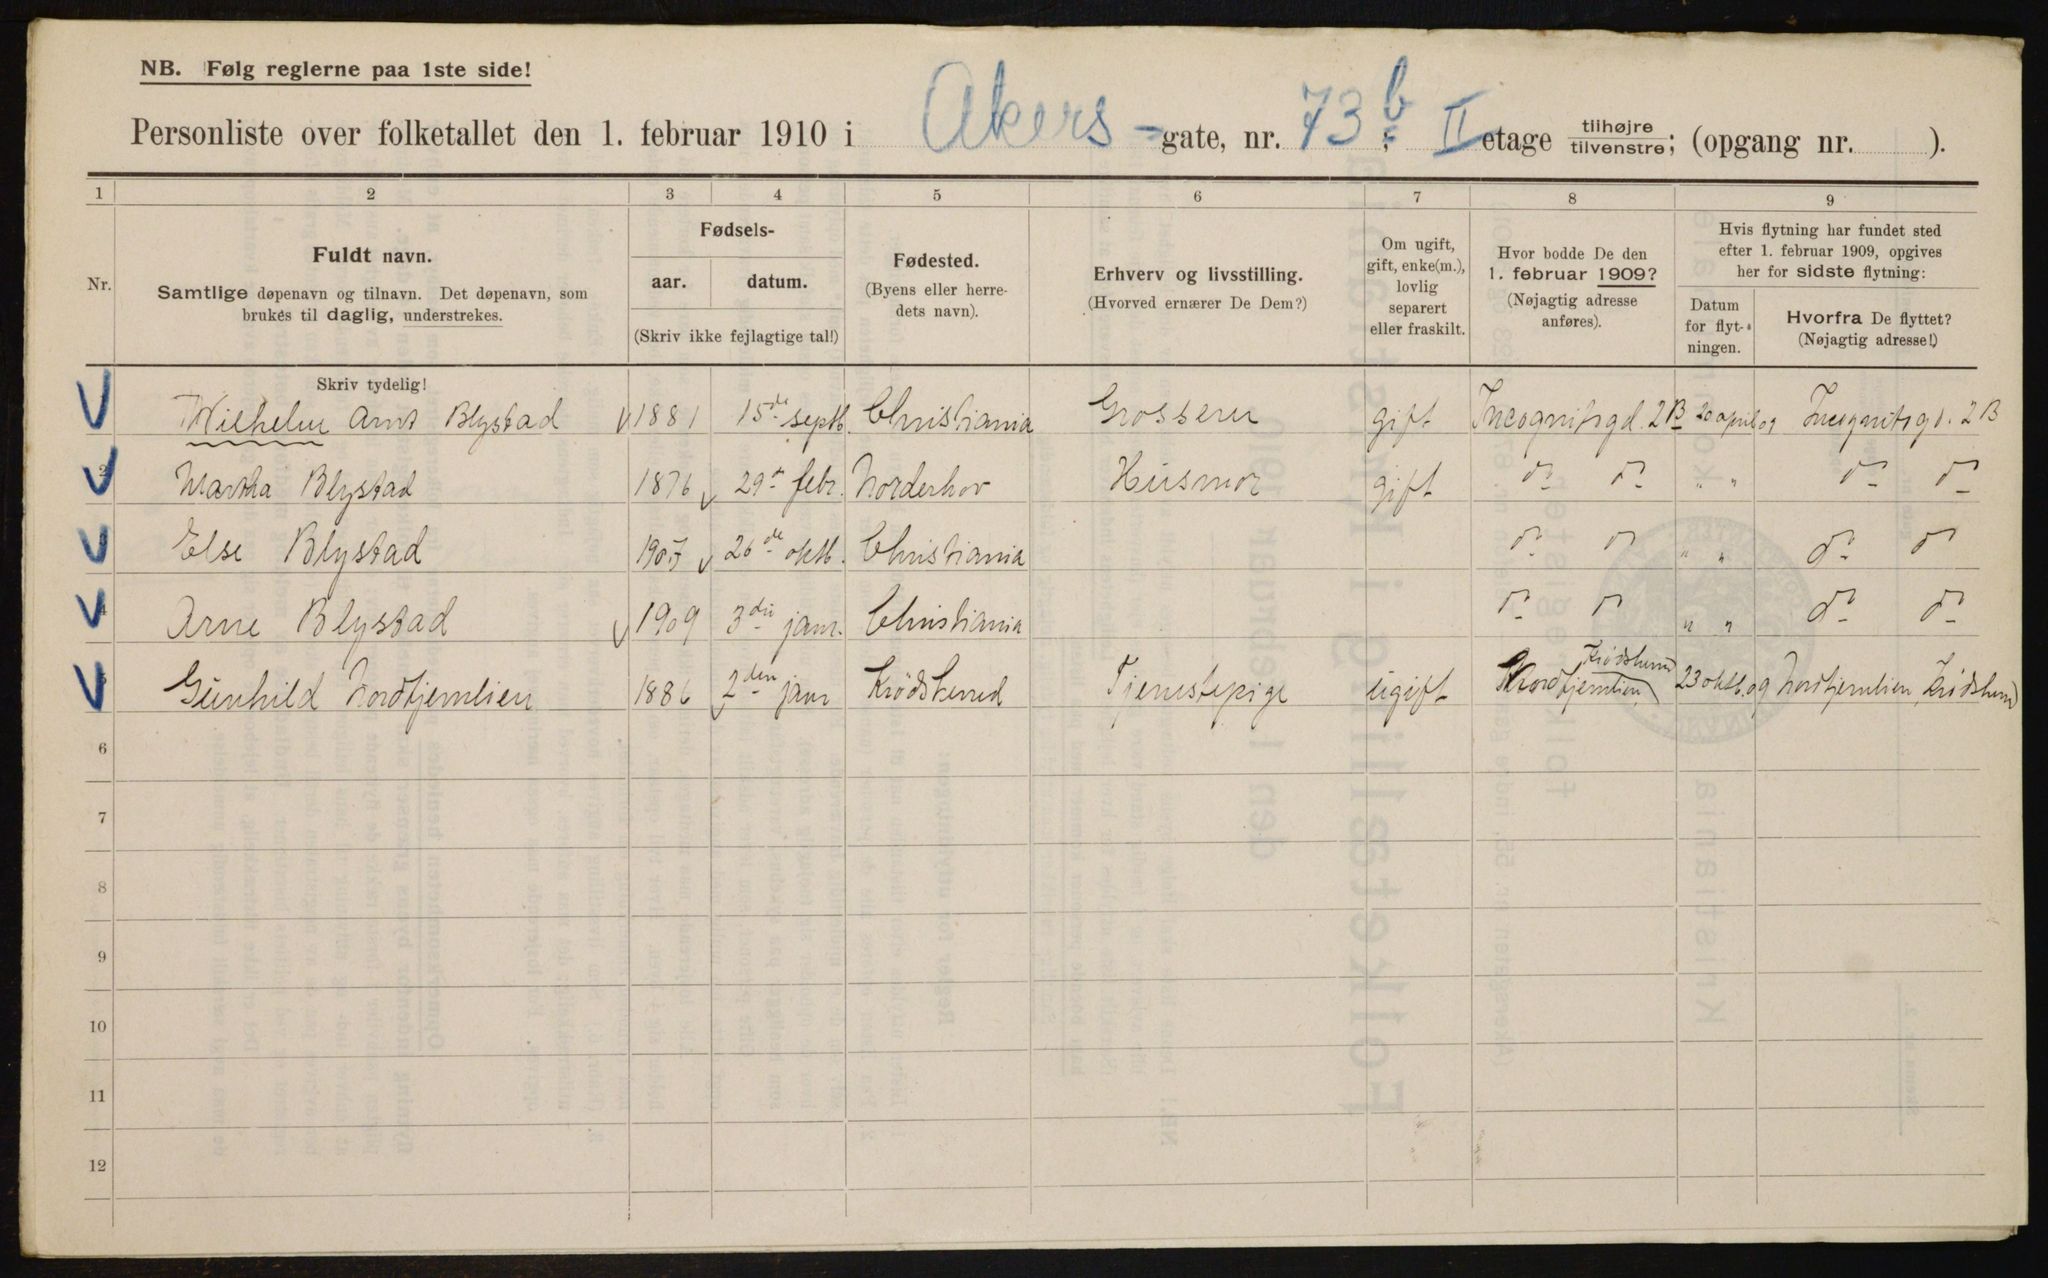 NB. Følg reglerne paa 1ste side!
Personliste over folketallet den 1. februar 1910 i Akers-gate, nr. 73 b; II etage tilhøjre tilvenstre; (opgang nr. ).
1 2 3 4 5 6 7 8 9
Nr.
Fuldt navn.
Samtlige døpenavn og tilnavn. Det døpenavn, som
brukes til daglig, understrekes.
Fødsels-
aar. datum.
(Skriv ikke fejlagtige tal!)
Fødested.
(Byens eller herre-
dets navn).
Erhverv og livsstilling.
(Hvorved ernærer De Dem?)
Om ugift,
gift, enke(m.),
lovlig
separert
eller fraskilt.
Hvor bodde De den
1. februar 1909?
(Nøjagtig adresse
anføres).
Hvis flytning har fundet sted
efter 1. februar 1909, opgives
her for sidste flytning:
Datum
for flyt-
ningen.
Hvorfra De flyttet?
(Nøjagtig adresse!)
Skriv tydelig!
Wilhelm Arnt Blystad 1881 15de septb. Christiania Grosserer gift Incognitogd. 2B 20 april 09 Incognitogd. 2B
2 Martha Blystad 1876 29de febr. Norderhov Husmor gift do do " " do do
3 Else Blystad 1907 26de oktb. Christiania do do " " do do
4 Arne Blystad 1909 3die janr. Christiania do do " " do do
5 Gunhild Nordtjernlien 1886 2den janr Krødsherred Tjenestepige ugift Nordtjernlien, Krødsherred 23 oktb. 09 Nordtjernlien, Krødsherred
6
7
8
9
10
11
12